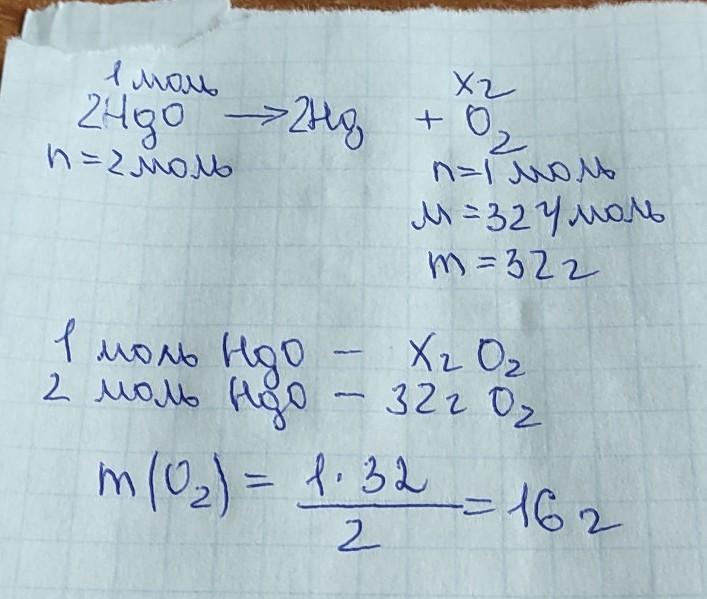 1 моль х г
2HgO → 2Hg + O₂
n = 2 моль n = 1 моль
M = 32 г/моль
m = 32 г
1 моль HgO – х г O₂
2 моль HgO – 32 г O₂
m(O₂) = (1 · 32)/2 = 16 г